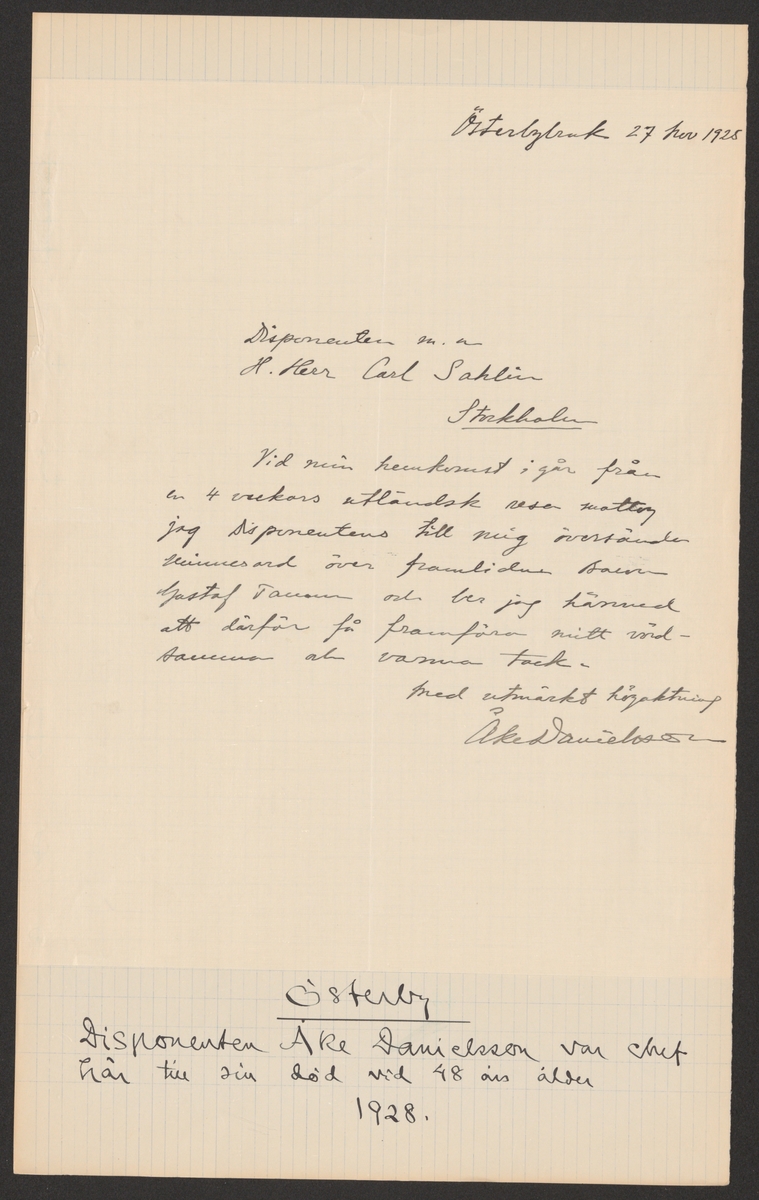 Österbybruk 27 nov 1925
Disponenten m. m
H. Herr Carl Sahlin
Stockholm
Vid min hemkomst i går från
en 4 veckors utländsk resa mottog
jag Disponentens till mig översända
minnesord över framlidne
Gustaf Tamm och ber jag härmed
att därför få framföra mitt vörd-
samma och varma tack.
Med utmärkt högaktning
Åke Danielsson
Österby
Disponenten Åke Danielsson var chef
här till sin död vid 48 års ålder
1928.